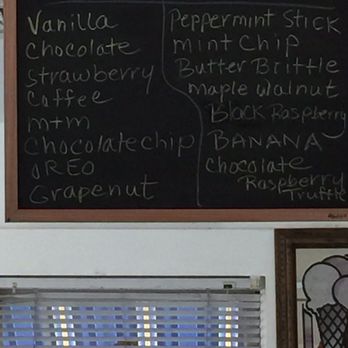 Vanilla
Chocolate
Strawberry
Coffee
m+m
Chocolatechip
OREO
Grapenut
Peppermint Stick
mint Chip
Butter Brittle
maple walnut
Black Raspberry
BANANA
Chocolate
Raspberry
Truffle